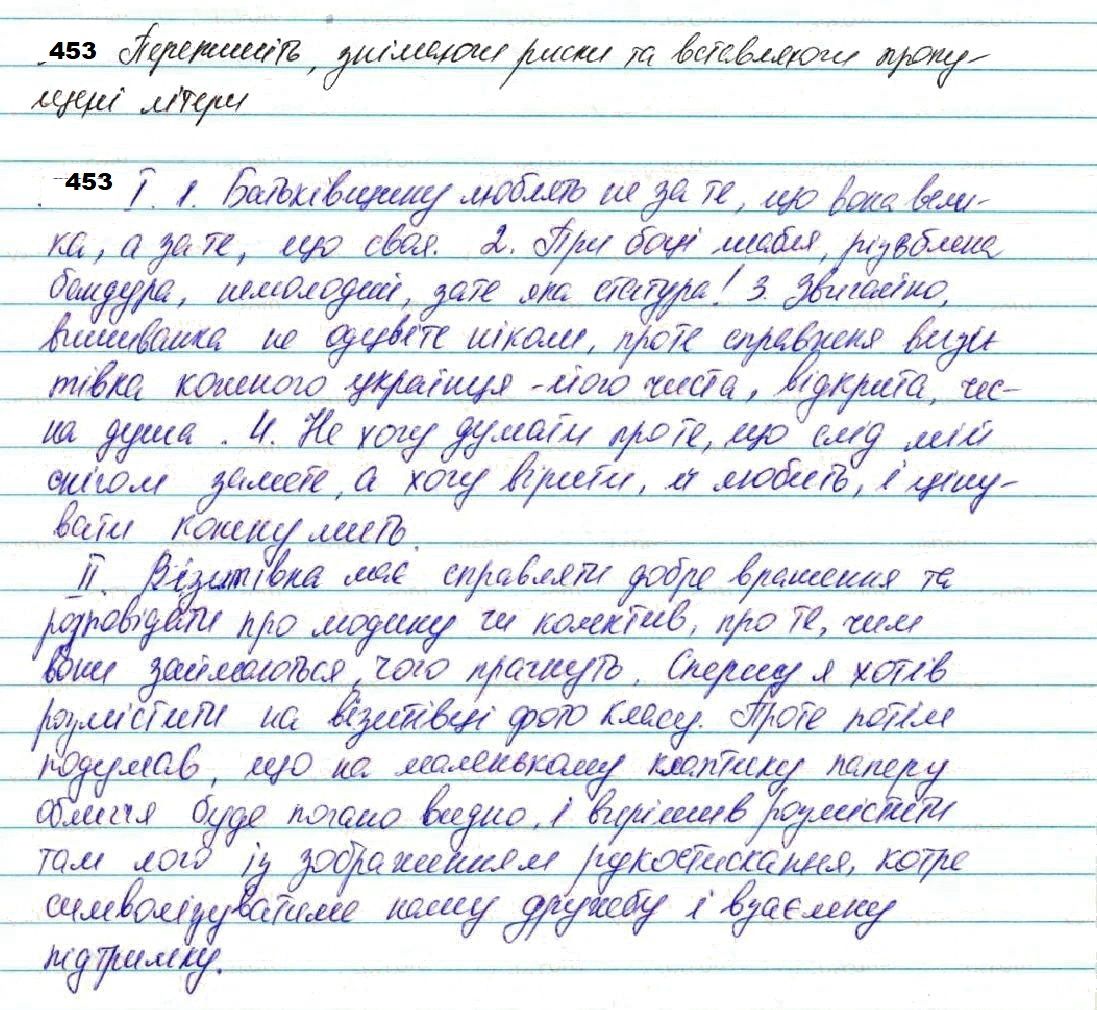 453 Перепишіть, знімаючи риски та вставляючи пропу-
щені літери
453 І. 1. Батьківщину люблять не за те, що вона вели-
ка, а за те, що своя. 2. При боці шабля, різьблена
бандура, немолодий, зате яка статура! 3. Звичайно,
вишиванка не одцвіте ніколи, проте справжня візи
тівка кожного українця - його чиста, відкрита, чес-
на душа. 4. Не хочу думати про те, що слід мій
снігом замете, а хочу вірити, й любить, і ціну-
вати кожну мить.
ІІ. Візитівка має справляти добре враження та
розповідати про людину чи колектив, про те, чим
вони займаються, чого прагнуть. Спершу я хотів
розмістити на візитівці фото класу. Проте потім
подумав, що на маленькому клаптику паперу
обличчя буде погано видно, і вирішив розмістити
там лого із зображенням рукостискання, котре
символізуватиме нашу дружбу і взаємну
підтримку.